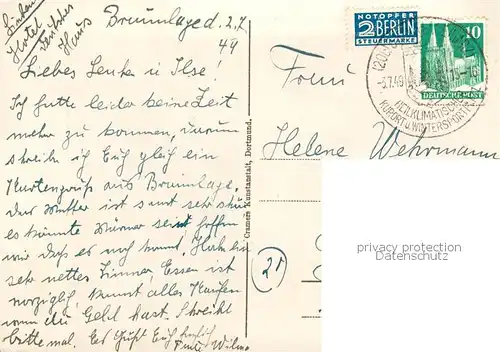 Hotel
Deutsches
Haus
Braunlage d. 2.7
49
Liebes Lenke u Ilse!
Ich hatte leider keine Zeit
mehr zu kommen, darum
schreibe ich Euch gleich ein
Kartengruß aus Braunlage.
Das Wetter ist sonst sehr schön
es könnte wärmer sein, hoffen
wir daß es noch kommt. Habe ein
sehr nettes Zimmer, Essen ist
vorzüglich, kannst alles kaufen
wenn du Geld hast. Schreibt
bitte mal. Es grüßt Euch herzlich
Cramers Kunstanstalt, Dortmund.
NOTOPFER
2 BERLIN
STEUERMARKE
10
DEUTSCHE POST
-3.7.49
HEILKLIMATISCHER
KURORT u. WINTERSPORTPLATZ
Frau
Helene Wehrmann
21
privacy protection
Datenschutz